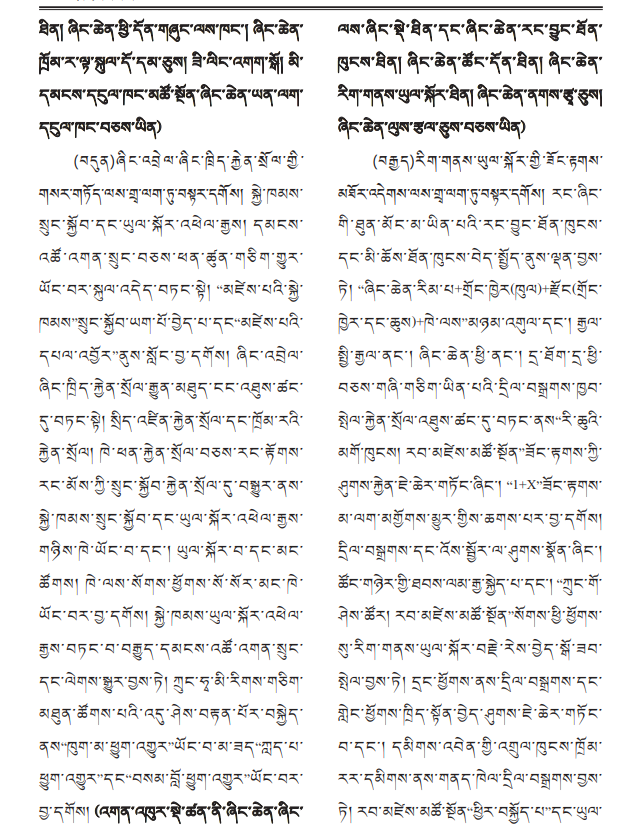 ཐིན། ཞིང་ཆེན་ཕྱི་དོན་གཞུང་ལས་ཁང་། ཞིང་ཆེན་
ཁྲོམ་ར་ལྟ་སྐུལ་དོ་དམ་ཅུས། ཟི་ལིང་འགག་སྒོ། མི་
དམངས་དངུལ་ཁང་མཚོ་སྔོན་ཞིང་ཆེན་ཡན་ལག་
དངུལ་ཁང་བཅས་ཡིན)
(བདུན)ཞིང་འབྲེལ་ཞིང་ཁྲིད་རྐྱེན་སྲོལ་གྱི་
གསར་གཏོད་ལས་གྲྭ་ལག་ཏུ་བསྟར་དགོས། སྐྱེ་ཁམས་
སྲུང་སྐྱོབ་དང་ཡུལ་སྐོར་འཕེལ་རྒྱས། དམངས་
འཚོ་འགན་སྲུང་བཅས་ཕན་ཚུན་གཅིག་གྱུར་
ཡོང་བར་སྐུལ་འདེད་བཏང་སྟེ། “མཛེས་པའི་སྐྱེ་
ཁམས”སྲུང་སྐྱོབ་ཡག་པོ་བྱེད་པ་དང“མཛེས་པའི་
དཔལ་འབྱོར”ནུས་སློང་བྱ་དགོས། ཞིང་འབྲེལ་
ཞིང་ཁྲིད་རྐྱེན་སྲོལ་རྒྱུན་མཐུད་ངང་འཐུས་ཚང་
དུ་བཏང་སྟེ། སྲིད་འཛིན་རྐྱེན་སྲོལ་དང་ཁྲོམ་རའི་
རྐྱེན་སྲོལ། ཁེ་ཕན་རྐྱེན་སྲོལ་བཅས་རང་རྟོགས་
རང་མོས་ཀྱི་སྲུང་སྐྱོབ་རྐྱེན་སྲོལ་དུ་བསྒྱུར་ནས་
སྐྱེ་ཁམས་སྲུང་སྐྱོབ་དང་ཡུལ་སྐོར་འཕེལ་རྒྱས་
གཉིས་ཁེ་ཡོང་བ་དང་། ཡུལ་སྐོར་བ་དང་མང་
ཚོགས། ཁེ་ལས་སོགས་ཕྱོགས་སོ་སོར་མང་ཁེ་
ཡོང་བར་བྱ་དགོས། སྐྱེ་ཁམས་ཡུལ་སྐོར་འཕེལ་
རྒྱས་བཏང་བ་བརྒྱུད་དམངས་འཚོ་འགན་སྲུང་
དང་ལེགས་སྒྱུར་བྱས་ཏེ། ཀྲུང་ཧྭ་མི་རིགས་གཅིག་
མཐུན་ཚོགས་པའི་འདུ་ཤེས་བརྟན་པོར་བསྐྱེད་
ནས“ཁུག་མ་ཕྱུག་འགྱུར”ཡོང་བ་མ་ཟད“ཀླད་པ་
ཕྱུག་འགྱུར”དང“བསམ་བློ་ཕྱུག་འགྱུར”ཡོང་བར་
བྱ་དགོས། (འགན་འཁུར་སྡེ་ཚན་ནི་ཞིང་ཆེན་ཞིང་
ལས་ཞིང་སྡེ་ཐིན་དང་ཞིང་ཆེན་རང་བྱུང་ཐོན་
ཁུངས་ཐིན། ཞིང་ཆེན་ཚོང་དོན་ཐིན། ཞིང་ཆེན་
རིག་གནས་ཡུལ་སྐོར་ཐིན། ཞིང་ཆེན་ནགས་རྩྭ་ཅུས།
ཞིང་ཆེན་ལུས་རྩལ་ཅུས་བཅས་ཡིན)
(བརྒྱད)རིག་གནས་ཡུལ་སྐོར་གྱི་ཐོང་རྟགས་
མཐོར་འདེགས་ལས་གྲྭ་ལག་ཏུ་བསྟར་དགོས། རང་ཞིང་
གི་ཐུན་མོང་མ་ཡིན་པའི་རང་བྱུང་ཐོན་ཁུངས་
དང་མི་ཆོས་ཐོན་ཁུངས་བེད་སྤྱོད་ནུས་ལྡན་བྱས་
ཏེ། “ཞིང་ཆེན་རིམ་པ+གྲོང་ཁྱེར(ཁུལ)+རྫོང(གྲོང་
ཁྱེར་དང་ཆུས)+ཁེ་ལས”མཉམ་འགུལ་དང་། རྒྱལ་
སྤྱི་རྒྱལ་ནང་། ཞིང་ཆེན་ཕྱི་ནང་། དྲ་ཐོག་དྲ་ཕྱི་
བཅས་གཞི་གཅིག་ཡིན་པའི་དྲིལ་བསྒྲགས་ཁྱབ་
སྤེལ་རྐྱེན་སྲོལ་འཐུས་ཚང་དུ་བཏང་ནས“རི་ཆུའི་
མགོ་ཁུངས། རབ་མཛེས་མཚོ་སྔོན”ཐོང་རྟགས་ཀྱི་
ཤུགས་རྐྱེན་ཇེ་ཆེར་གཏོང་ཞིང་། “1+X”ཐོང་རྟགས་
མ་ལག་མགྱོགས་མྱུར་གྱིས་ཆགས་པར་བྱ་དགོས།
དྲིལ་བསྒྲགས་དང་འོས་སྦྱོར་ལ་ཤུགས་སྣོན་ཞིང་།
ཚོང་གཉེར་གྱི་ཐབས་ལམ་རྒྱ་སྐྱེད་པ་དང་། “ཀྲུང་གོ་
ཤེས་ཚོར། རབ་མཛེས་མཚོ་སྔོན”སོགས་ཕྱི་ཕྱོགས་
སུ་རིག་གནས་ཡུལ་སྐོར་བརྗེ་རེས་བྱེད་སྒོ་ཟབ་
སྤེལ་བྱས་ཏེ། དྲང་ཕྱོགས་ནས་དྲིལ་བསྒྲགས་དང་
གླེང་ཕྱོགས་ཁྲིད་སྟོན་བྱེད་ཤུགས་ཇེ་ཆེར་གཏོང་
བ་དང་། དམིགས་འབེན་གྱི་འགྲུལ་ཁུངས་ཁྲོམ་
རར་དམིགས་ནས་གནད་ཁེལ་དྲིལ་བསྒྲགས་བྱས་
ཏེ། རབ་མཛེས་མཚོ་སྔོན“ཕྱིར་བསྐྱོད་པ”དང་ཡུལ་